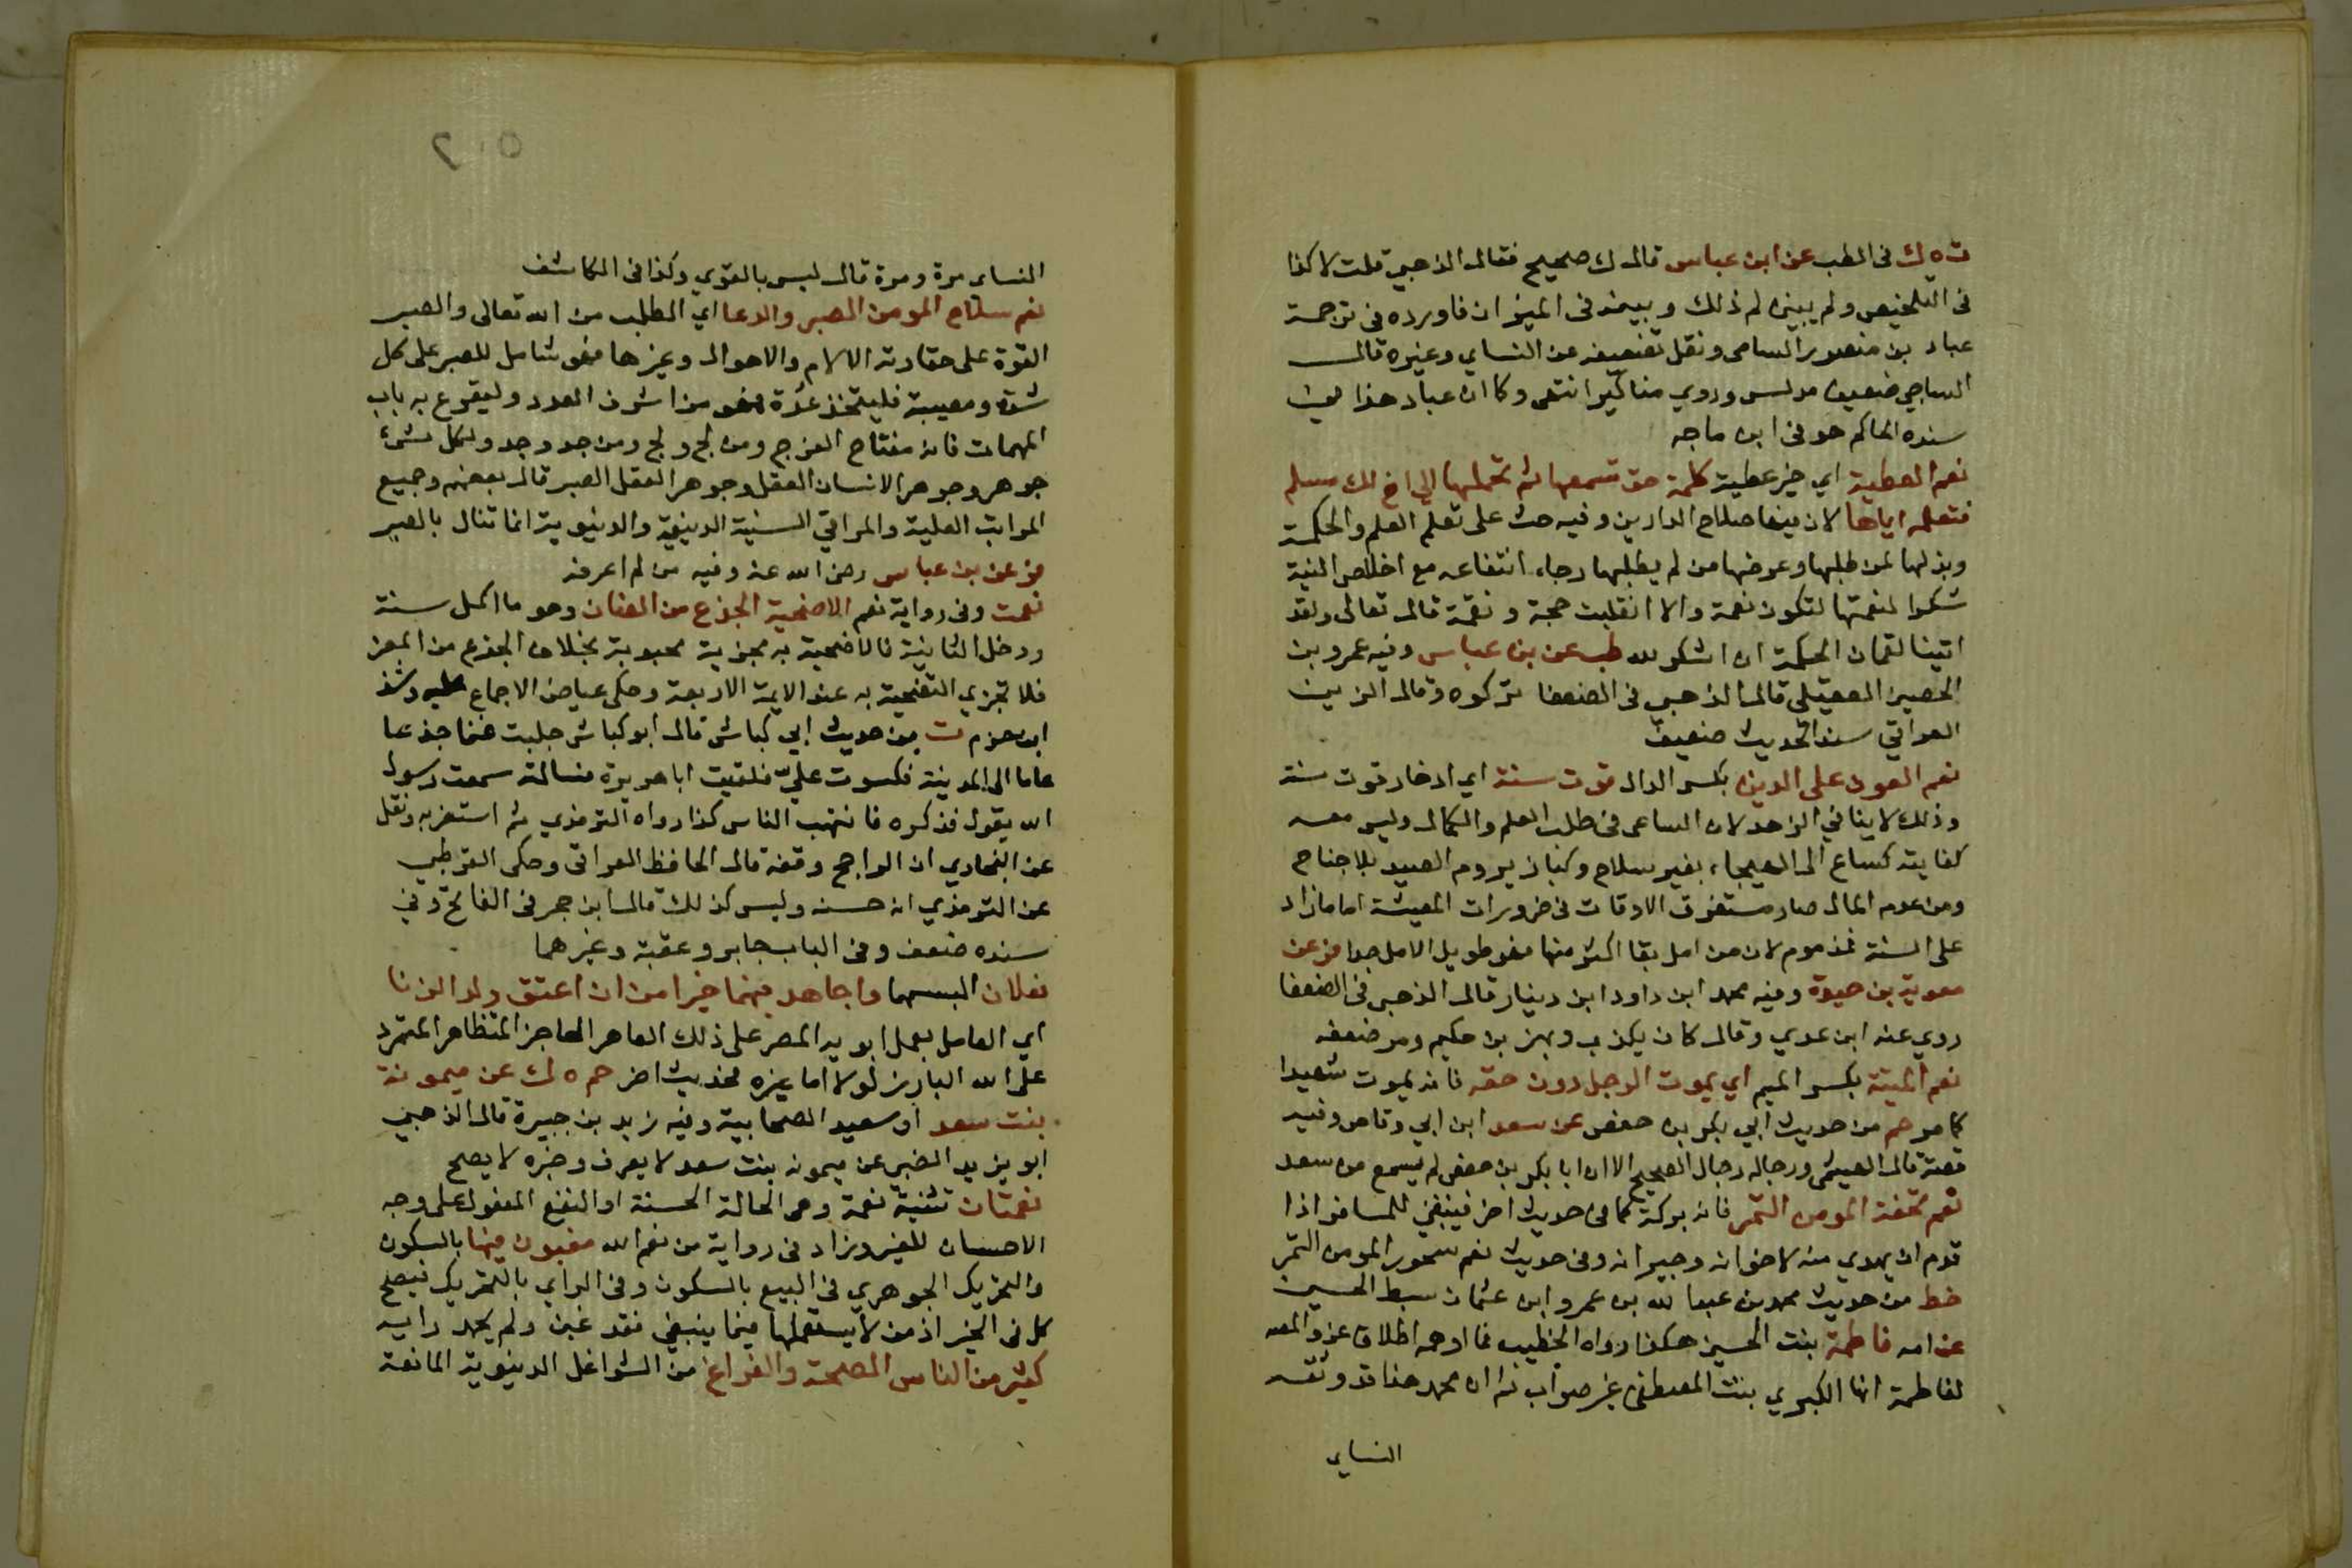 ت ه ك فى الطب عن ابن عباس قال ك صحيح فقال الذهبى قلت لا كذا
فى التلخيص ولم يبين لم ذلك وبينه فى الميزان فاورده فى ترجمة
عباد بن منصور السامى ونقل تضعيفه عن النساي وغيره قال
الساجي ضعيف مدلس وروي مناكير انتهى وكان عباد هذا فى
سنده الحاكم هو فى ابن ماجه
نعم العطية اي خير عطية كلمة حق تسمعها ثم تحملها الى اخ لك مسلم
فتعلمه اياها لان فيها صلاح الدارين وفيه حث على تعلم العلم والحكمة
وبذلها لمن طلبها وعرضها من لم يطلبها رجاء انتفاعه مع اخلاص النية
شكرا لنعمتها لتكون نعمة والا انقلبت حجة ونقمة قال تعالى ولقد
اتينا لقمان الحكمة ان اشكر لله طب عن بن عباس وفيه عمرو بن
الحصين العقيلى قال الذهبى فى الضعفا تركوه وقال الزين
العراقي سند الحديث ضعيف
نعم العون على الدين بكسر الدال قوت سنة اي ادخار قوت سنة
وذلك لا ينافي الزهد لان الساعى فى طلب العلم والكمال وليس معه
كفايته كساع الى الهيجاء بغير سلاح وكباز يروم الصيد بلا جناح
ومن عدم المال صار مستغرق الاوقات فى ضرورات المعيشة اما ما زاد
على السنة فمذموم لان من امل بقا اكثر منها فهو طويل الامل جدا فر عن
معوية بن حيوة وفيه محمد ابن داود ابن دينار قال الذهبى فى الضعفا
روي عنه ابن عدي وقال كان يكذب وبهز بن حكيم ومر ضعفه
نعم الميتة بكسر الميم اي يموت الرجل دون حقه فانه يموت شهيدا
كما مر حم من حديث ابي بكر بن حفص عن سعد ابن ابي وقاص وفيه
قصة قال الهيثمى ورجاله رجال الصحيح الا ان ابا بكر بن حفص لم يسمع من سعد
نعم تحفة المومن التمر فانه بركة كما فى حديث اخر فينبغي للمسافر اذا
قدم ان يهدي منه لاخوانه وجيرانه وفى حديث نعم سحور المومن التمر
خط من حديث محمد بن عبد الله بن عمرو ابن عثمان سبط الحسين
عن امه فاطمة بنت الحسين هكذا رواه الخطيب فما اوهمه اطلاق عزو المص
لفاطمة انها الكبري بنت المصطفى غير صواب ثم ان محمد هذا قد وثقه
النساي
٢٠٥
النساي مرة ومرة قال ليس بالقوي وكذا فى الكاشف
نعم سلاح المومن الصبر والدعا اي الطلب من الله تعالى والصبر
القوة على مقاومة الالام والاهوال وغيرها فهو شامل للصبر على كل
شدة ومصيبة فليتخذ عدة فهو من اشرف العدد وليقرع به باب
المهمات فانه مفتاح الفرج ومن لج ولج ومن جد وجد ولكل شيء
جوهر وجوهر الانسان العقل وجوهر العقل الصبر قال بعضهم وجميع
المراتب العلية والمراقي السنية الدينية والدنيوية انما تنال بالصبر
فر عن بن عباس رضى الله عنه وفيه من لم اعرفه
نعمت وفى رواية نعم الاضحية الجذع من الضان وهو ما اكمل سنة
ودخل الثانية فالاضحية به مجزية محبوبة بخلاف الجذع من المعز
فلا تجزي التضحية به عند الايمة الاربعة وحكى عياض الاجماع عليه وشذ
ابن حزم ت من حديث ابي كباش قال ابو كباش جلبت غنما جذعا
عاما الى المدينة فكسرت عليّ فلقيت ابا هريرة فسالته سمعت رسول
الله يقول فذكره فانتهب الناس كذا رواه الترمذي ثم استغربه ونقل
عن البخاري ان الراجح وقفه قال الحافظ العراقى وحكى القرطبى
عن الترمذي انه حسنه وليس كذلك قال ابن حجر فى الفاتح وفي
سنده ضعف وفى الباب جابر وعقبة وغيرهما
نعلان البسهما واجاهد فيهما خيرا من ان اعتق ولد الزنا
اي العامل بعمل ابويه المصر على ذلك العاهر الفاجر المتظاهر المتمرد
على الله البارز لولا اما غيره لحديث اخر حم ه ك عن ميمونة
بنت سعد او سعيد الصحابية وفيه زيد بن جبيرة قال الذهبى
ابو يزيد الضبى عن ميمونه بنت سعد لا يعرف وخبره لا يصح
نعمتان تثنية نعمة وهى الحالة الحسنة او النفع المفعول على وجه
الاحسان للغير وزاد فى رواية من نعم الله مغبون فيهما بالسكون
والتحريك الجوهري فى البيع بالسكون وفى الراي بالتحريك فيصح
كل فى الخير اذ من لا يستعملها فيما ينبغي فقد غبن ولم يحمد رايه
كثير من الناس الصحة والفراغ من الشواغل الدينوية المانعة